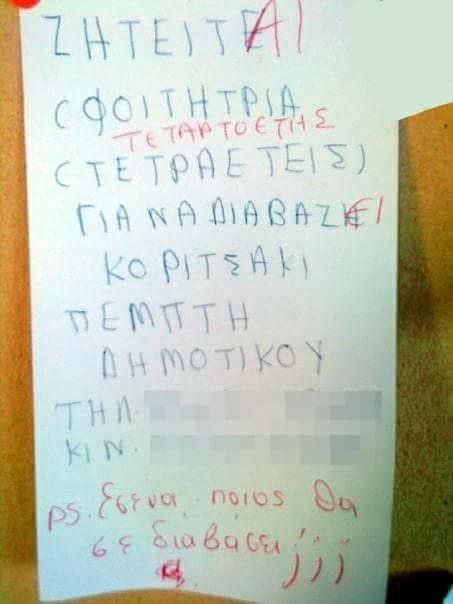 ΖΗΤΕΙΤΕΑΙ
(ΦΟΙΤΗΤΡΙΑ
ΤΕΤΑΡΤΟΕΤΗΣ
(ΤΕΤΡΑΕΤΕΙΣ)
ΓΙΑ ΝΑ ΔΙΑΒΑΖΕΙ
ΚΟΡΙΤΣΑΚΙ
ΠΕΜΠΤΗ
ΔΗΜΟΤΙΚΟΥ
ΤΗΛ.
ΚΙΝ.
ps. Εσενα ποιος θα
σε διαβασει!;;
;;;